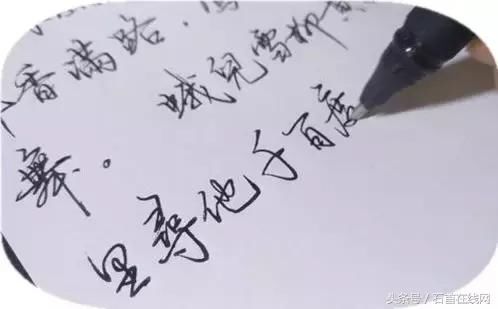 香满路
舞。 蛾兒雪柳
里尋他千百度
头条号/石首在线网